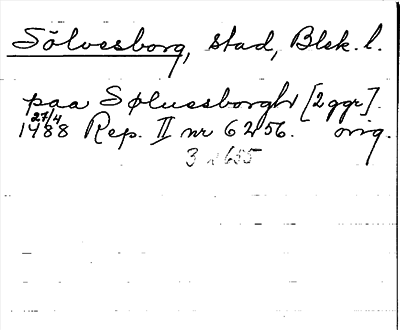 Sölvesborg, stad, Blek. l.
paa Søluessborghr [2 ggr].
27/4
1488 Rep. II nr 6256. orig.
3